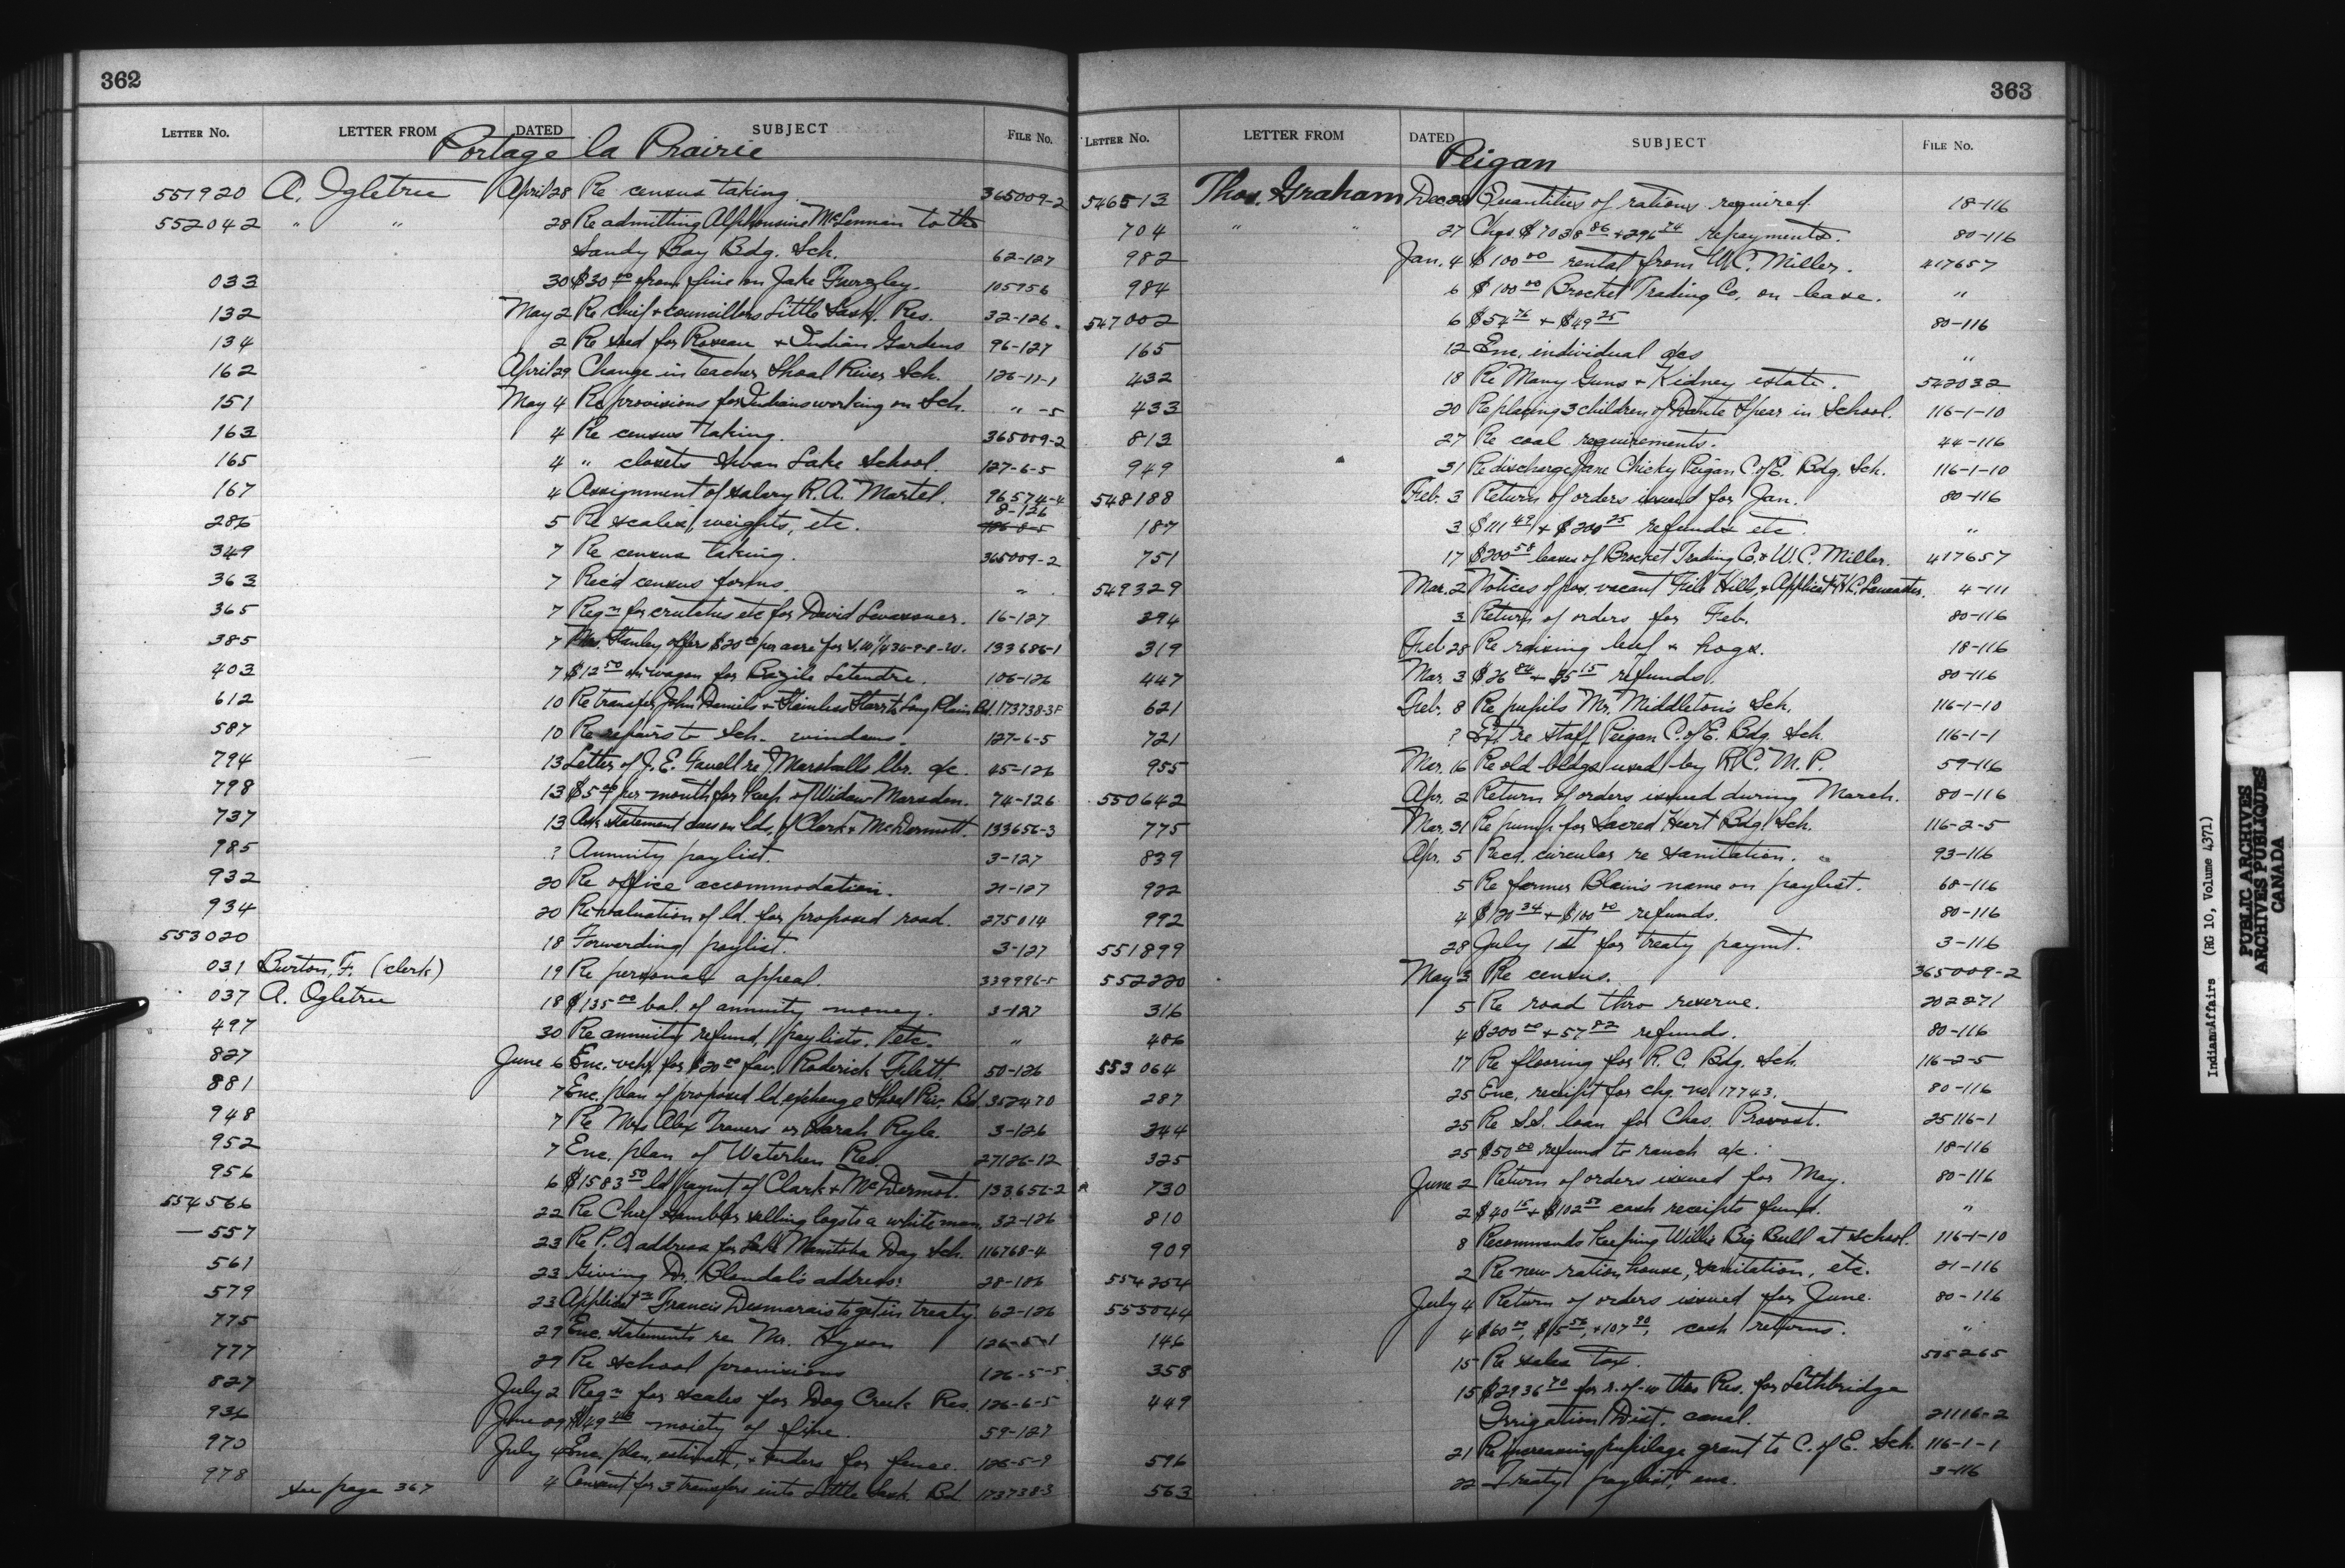 362
LETTER No. LETTER FROM DATED SUBJECT FILE No.
Portage la Prairie
551920 A. Ogletree April 28 Re census taking. 365009-2
552042 " " 28 Re admitting Alphonsine McLennan to the
Sandy Bay Bdg. Sch. 62-127
033 30 $30.00 from fine on Jake 105956
132 May 2 Re Chief & councillors Little Sask. Res. 32-126
134 2 Re seed for Roseau & Indian Gardens 96-127
162 April 29 Change in teacher Shoal River Sch. 126-11-1
151 May 4 Re provisions for Indians working on Sch. " -5
163 4 Re census taking. 365009-2
165 4 " closets Swan Lake School. 127-6-5
167 4 Assignment of salary R. A. Martel. 96574-4
286 5 Re scales, weights, etc. 8-126
349 7 Re census taking. 365009-2
363 7 Rec'd census forms. "
365 7 Reqn for crutches etc for David 16-127
385 7 Mrs. Stanley offers $20.00 per acre for S.W. 1/4 36-9-8-W. 133686-1
403 7 $12.50 on wagon for Bazile Letendre. 106-126
612 10 Re transfer John Daniels & Starr to Long Plain Bd. 173738-3F
587 10 Re repairs to Sch. windows. 127-6-5
794 13 Letter of J. E. Favell re Marshalls lbr. a/c. 45-126
798 13 $5.00 per month for keep of Widow Marsden. 74-126
737 13 Ask statement dues on lds. of Clark & McDermott. 133656-3
985 ? Annuity paylist. 3-127
932 20 Re office accommodation. 21-127
934 20 Re valuation of ld. for proposed road. 275014
553020 18 Forwarding paylist. 3-127
031 Burton, F. (clerk) 19 Re personal appeal. 339996-5
037 A. Ogletree 18 $135.00 bal. of annuity money. 3-127
497 30 Re annuity refund, paylists, etc. "
827 June 6 Enc. vchr. for $20.00 fav. Roderick 50-126
881 7 Enc. plan of proposed ld. exchange Shoal Riv. Bd. 352470
948 7 Re Mrs Alex Travers or Sarah Kyle. 3-126
952 7 Enc. plan of Waterhen Res. 27126-12
956 6 $1583.50 ld paymt of Clark & McDermot. 133656-2
554566 22 Re Chief selling logs to a white man. 32-126
—557 23 Re P.O. address for Lake Manitoba Day Sch. 116768-4
561 23 Giving Dr. Blondal's address. 28-126
579 23 Applicatn Francis Desmarais to get in treaty. 62-126
775 29 Enc. statements re Mr. Hyson 126-5-1
777 29 Re school provisions 126-5-5
827 July 2 Reqn for scales for Dog Creek Res. 126-6-5
936 June 29 $149.43 moiety of fine. 59-127
970 July 4 Enc. plan, estimate, & tenders for fence. 126-5-9
978 4 Consent for 3 transfers into Little Sask. Bd. 173738-3
see page 367
363
LETTER No. LETTER FROM DATED SUBJECT FILE No.
Peigan
546513 Thos. Graham Dec. 28 Quantities of rations required. 18-116
704 " " 27 Chqs. $7038.86 + 296.74 repayments. 80-116
982 Jan. 4 $100.00 rental from W. C. Miller. 417657
984 6 $100.00 Brocket Trading Co. on lease. "
547002 6 $54.76 + $49.25 80-116
165 12 Enc. individual a/cs "
432 18 Re Many Guns & Kidney estate. 542032
433 20 Re placing 3 children of Dante Spear in School. 116-1-10
813 27 Re coal requirements. 44-116
949 31 Re discharge Jane Chicky Peigan C. of E. Bdg. Sch. 116-1-10
548188 Feb. 3 Return of orders issued for Jan. 80-116
187 3 $111.49 + $200.25 refunds etc. "
751 17 $200.58 leases of Brocket Trading Co. & W. C. Miller. 417657
549329 Mar. 2 Notices of pos. vacant File Hills, & Applicat'n H. C. Lancaster. 4-111
294 3 Return of orders for Feb. 80-116
319 Feb. 28 Re raising beef & hogs. 18-116
447 Mar. 3 $26.84 + $5.15 refunds. 80-116
621 Feb. 8 Re pupils Mr. Middleton's Sch. 116-1-10
721 ? Ext re staff Peigan C. of E. Bdg. Sch. 116-1-1
955 Mar. 16 Re old bldgs used by R. C. M. P. 59-116
550642 Apr. 2 Return of orders issued during March. 80-116
775 Mar. 31 Re pump for Sacred Heart Bdg. Sch. 116-2-5
839 Apr. 5 Recd. circular re sanitation. 93-116
922 5 Re former Blain's name on paylist. 68-116
992 4 $120.34 + $100.00 refunds. 80-116
551899 28 July 1st for treaty paymt. 3-116
552220 May 3 Re census. 365009-2
316 5 Re road thro reserve. 202271
486 4 $200.00 + 57.82 refunds. 80-116
553064 17 Re flooring for R. C. Bdg. Sch. 116-2-5
287 25 Enc. receipt for chq. no. 17743. 80-116
344 25 Re S.S. loan for Chas. Provost. 25116-1
325 25 $50.00 refund to ranch a/c. 18-116
730 June 2 Return of orders issued for May. 80-116
810 2 $40.15 + $102.50 cash receipts fund. "
909 8 Recommends keeping Willie Big Bull at school. 116-1-10
554254 2 Re new ration house, sanitation, etc. 21-116
555044 July 4 Return of orders issued for June. 80-116
146 4 $60.00, $15.56, + 107.90, cash returns. "
358 15 Re sales tax. 505265
449 15 $2936.70 for r.-of-w thro Res. for Lethbridge
Irrigation Dist. canal. 21116-2
596 21 Re increasing pupilage grant to C. of E. Sch. 116-1-1
563 22 Treaty paylist, enc. 3-116
Indian Affairs (RG 10, Volume 4371)
PUBLIC ARCHIVES
ARCHIVES PUBLIQUES
CANADA